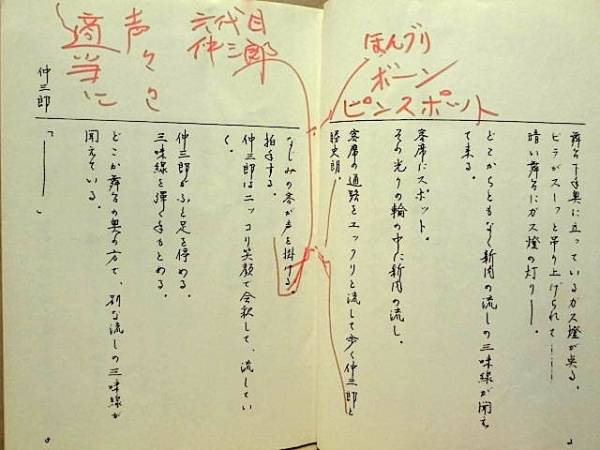 ほんブリ
ボーン
ピンスポット
舞台下手奥に立っているガス燈が点る。
ビラがスーッと吊り上げられて……
暗い舞台にガス燈の灯り――。
どこからともなく新内の流しの三味線が聞え
て来る。
客席にスポット。
その光りの輪の中に新内の流し。
客席の通路をユックリと流して歩く仲三郎と
史朗。
六代目
仲三郎
声々を
適当に
なじみの客が声を掛ける。
拍手する。
仲三郎はニッコリ笑顔で会釈して、流してい
く。
仲三郎がふと足を停める。
三味線を弾く手もとめる。
どこか舞台の奥の方で、別な流しの三味線が
聞えている。
仲三郎 「――――」